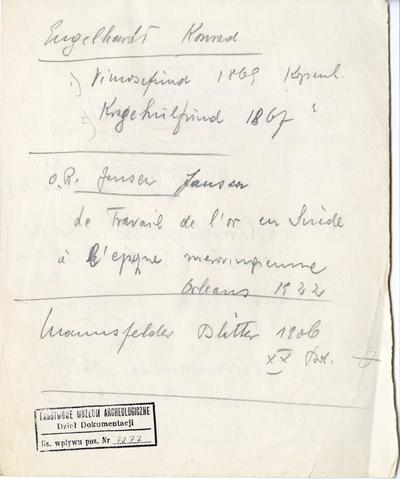 Engelhardt Konrad
1) Vimosefund 1869 Kopenh.
2) Kragehulfund 1867 "
O.R. Janser Jansen
de Travail de l'or en Suède
à l'epoqne merovingienne
Orleans 1922
Mannsfelder Blätter 1906
XX Bd.
PAŃSTWOWE MUZEUM ARCHEOLOGICZNE
Dział Dokumentacji
ks. wpływu poz. Nr 7277